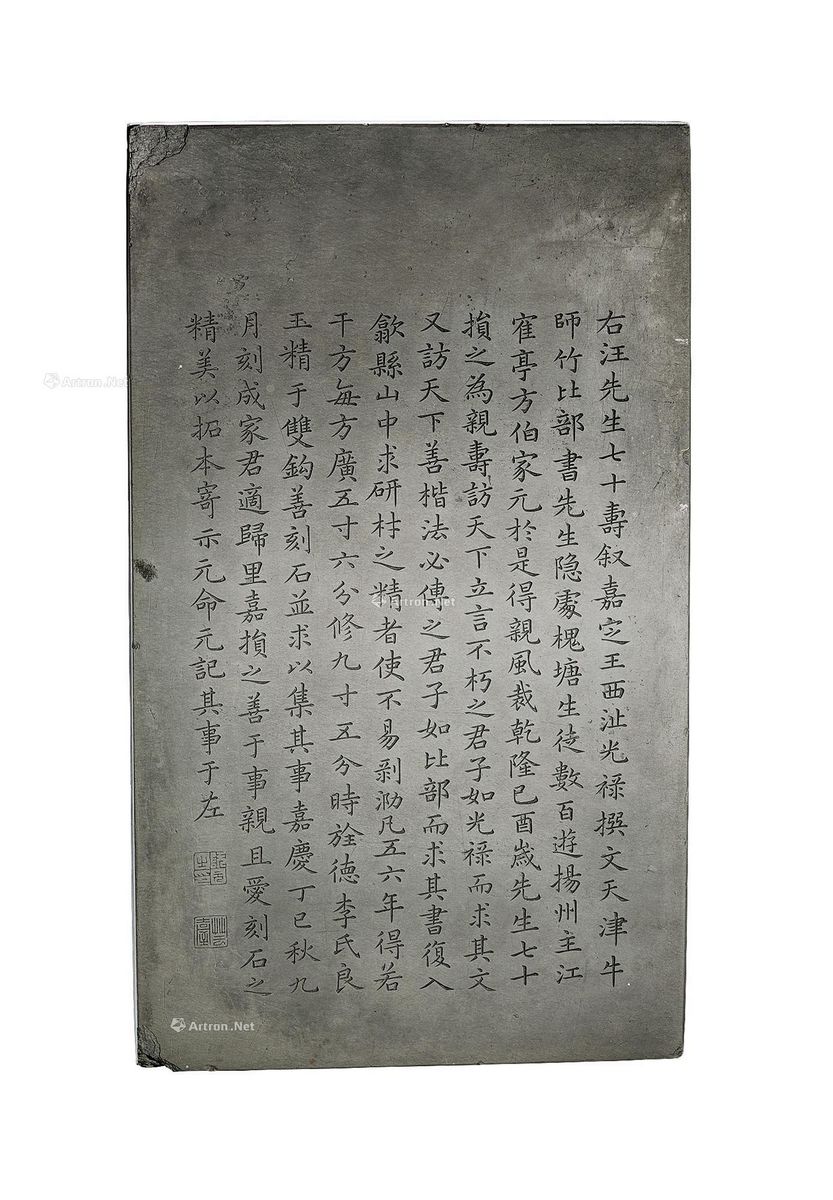 右汪先生七十壽叙嘉㝎王西沚光禄撰文天津牛
師竹比部書先生隐處槐塘生徒數百遊揚州主江
寉亭方伯家元於是得親風裁乾隆已酉歲先生七十
損之為親壽訪天下立言不朽之君子如光禄而求其文
又訪天下善楷法必傳之君子如比部而求其書復入
歙縣山中求研材之精者使不易剥泐凡五六年得若
干方每方廣五寸六分修九寸五分時旌德李氏良
玉精于雙鈎善刻石並求以集其事嘉慶丁巳秋九
月刻成家君適歸里嘉損之善于事親且愛刻石之
精美以拓本寄示元命元記其事于左
Artron.Net
Artron.Net
Artron.Net